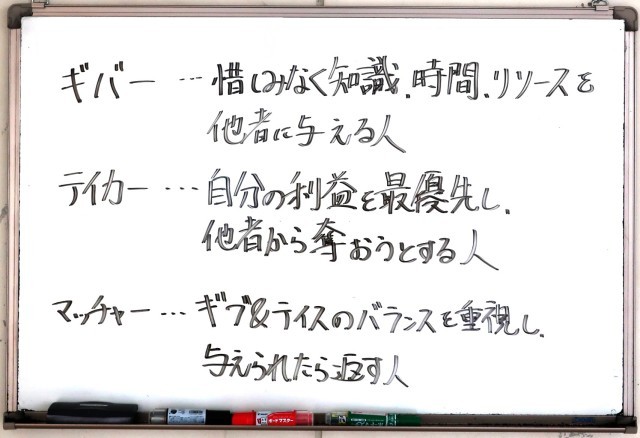 ギバー … 惜しみなく知識、時間、リソースを
他者に与える人
テイカー … 自分の利益を最優先し、
他者から奪おうとする人
マッチャー … ギブ&テイスのバランスを重視し、
与えられたら返す人
ボードマスター